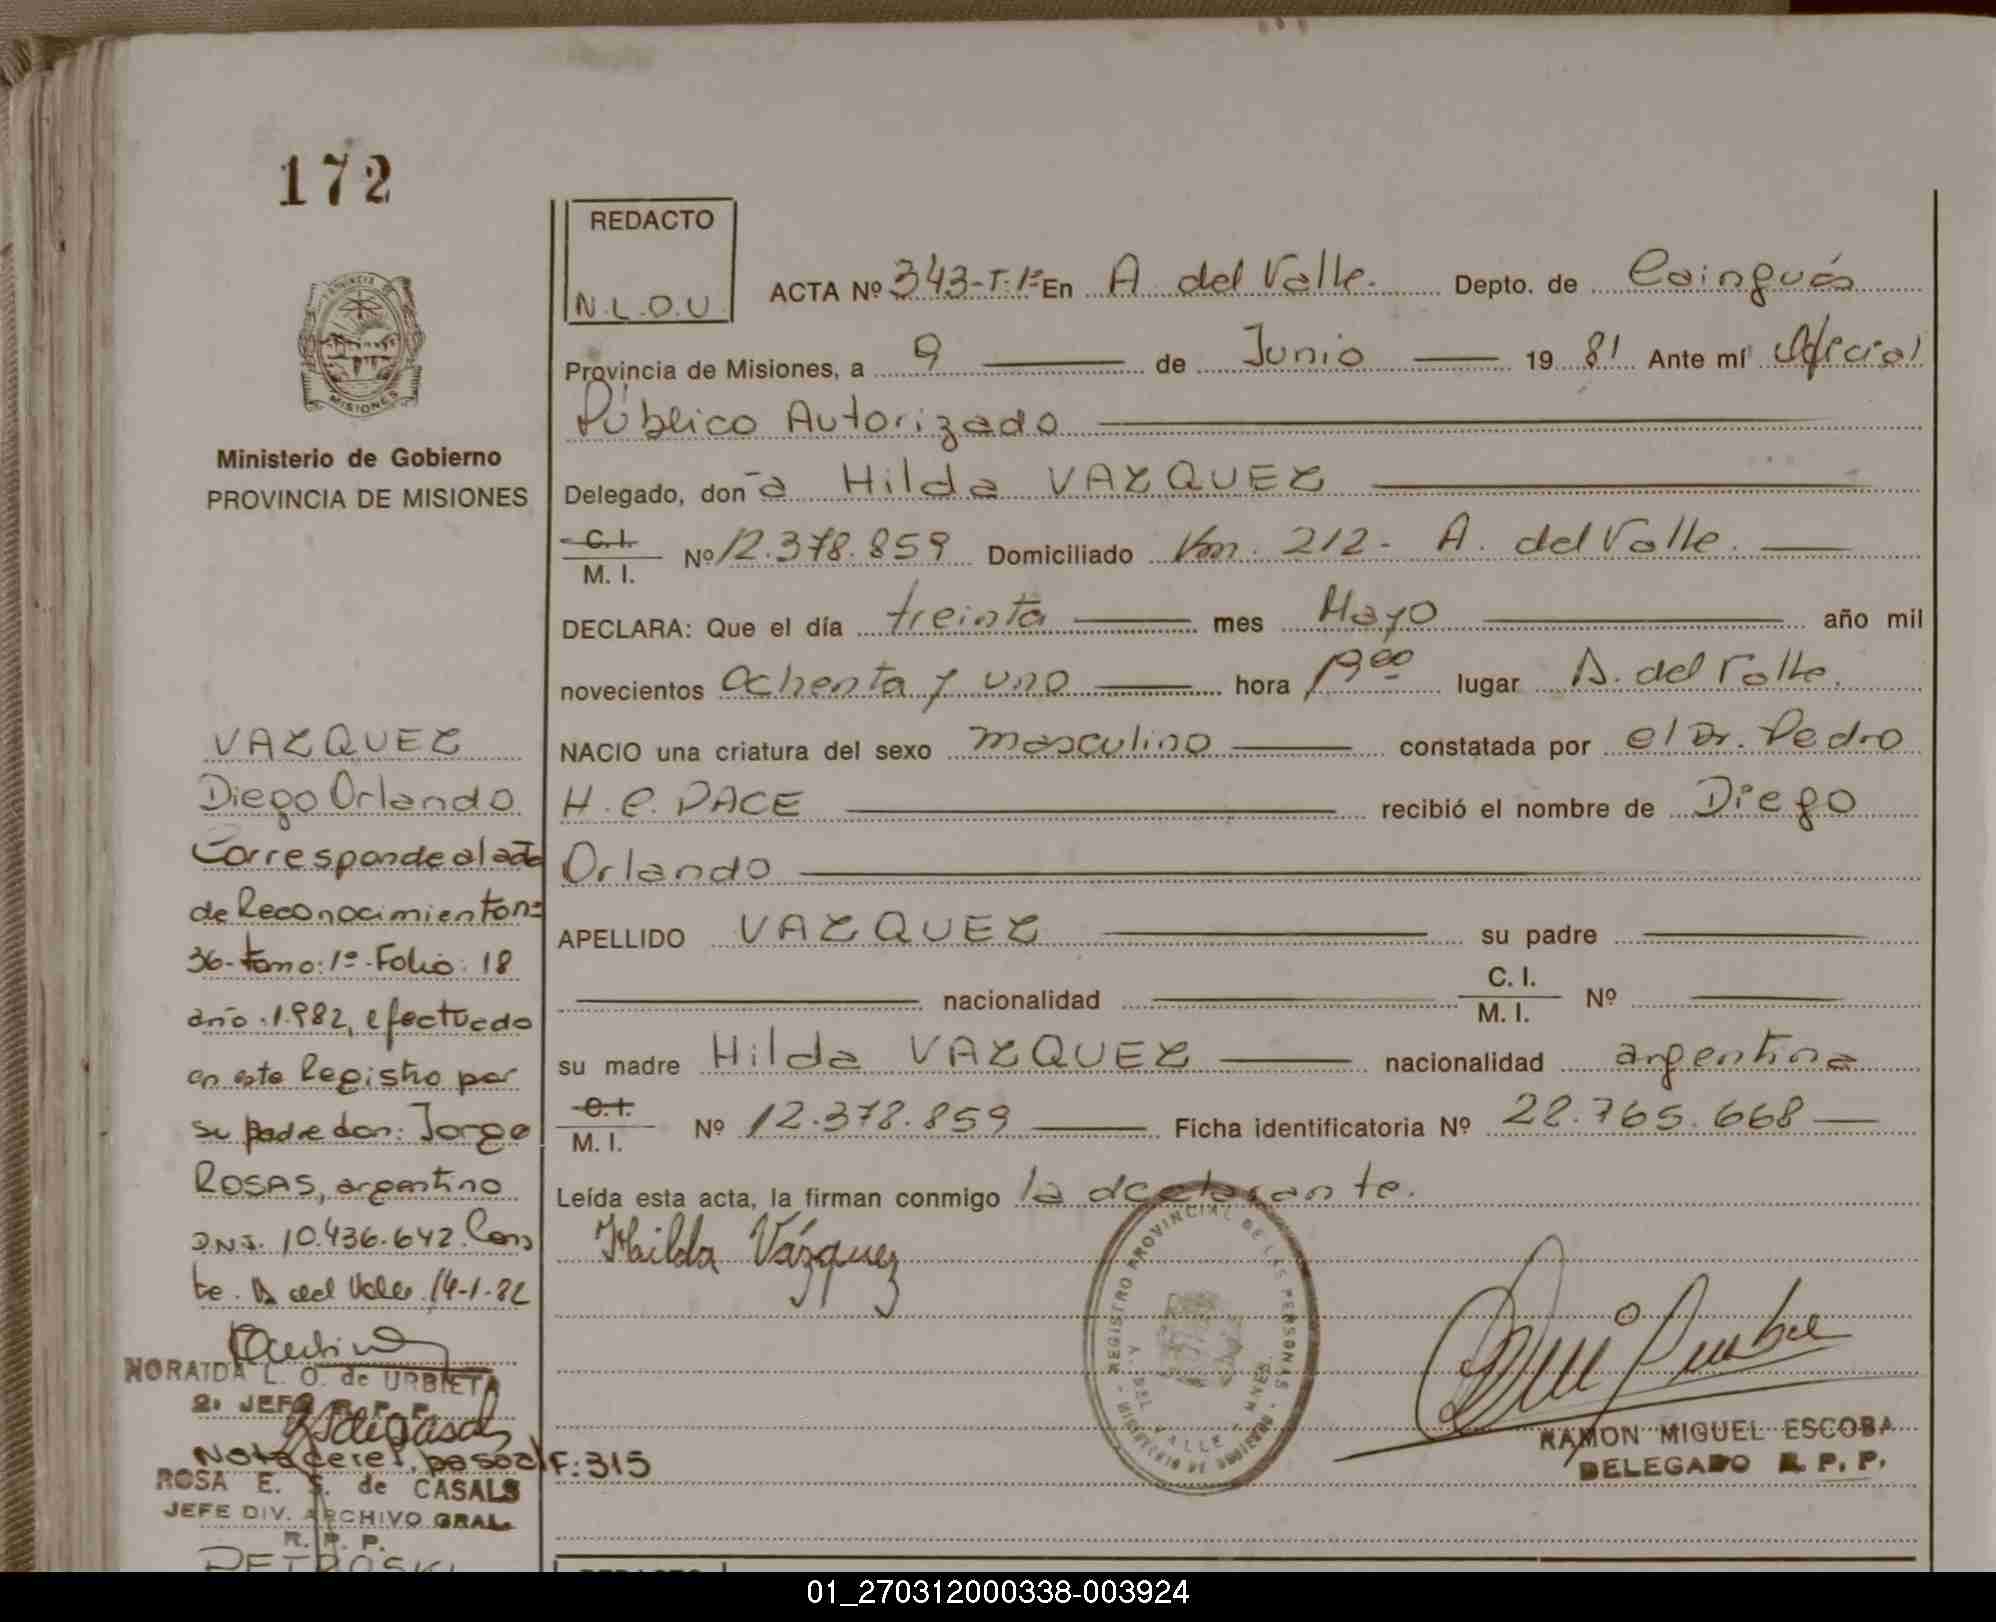 172
PROVINCIA DE
MISIONES
Ministerio de Gobierno
PROVINCIA DE MISIONES
VAZQUEZ
Diego Orlando
Corresponde al acta
de Reconocimiento nº
36-tomo: 1º-Folio: 18
año: 1982, efectuado
en este Registro por
su padre don: Jorge
ROSAS, argentino
D.N.I. 10.436.642. Cons
te. A del Valle. 14-1-82
NORAIDA L. O. de URBIETA
2º JEFE R. P. P.
Nota ceref. pasa al F: 315
ROSA E. S. de CASALS
JEFE DIV. ARCHIVO GRAL.
R. P. P.
PETROSKI
REDACTO
N.L.O.U.
ACTA Nº 343-T:1º En A. del Valle. Depto. de Cainguás
Provincia de Misiones, a 9 de Junio 19 81 Ante mí Oficial
Público Autorizado
Delegado, don ~a Hilda VAZQUEZ
C. I. M. I. Nº 12.378.859 Domiciliado Km. 212- A. del Valle.
DECLARA: Que el día treinta mes Mayo año mil
novecientos ochenta y uno hora 19⁰⁰ lugar A. del Valle.
NACIO una criatura del sexo masculino constatada por el Dr. Pedro
H. C. PACE recibió el nombre de Diego
Orlando
APELLIDO VAZQUEZ su padre
nacionalidad C. I. M. I. Nº
su madre Hilda VAZQUEZ nacionalidad argentina
C. I. M. I. Nº 12.378.859 Ficha identificatoria Nº 28.765.668
Leída esta acta, la firman conmigo la declarante.
Hilda Vázquez
REGISTRO PROVINCIAL DE LAS PERSONAS
A. DEL VALLE - MNES.
MINISTERIO DE GOBIERNO
RAMON MIGUEL ESCOBA
DELEGADO R. P. P.
REDACTO
01_270312000338-003924